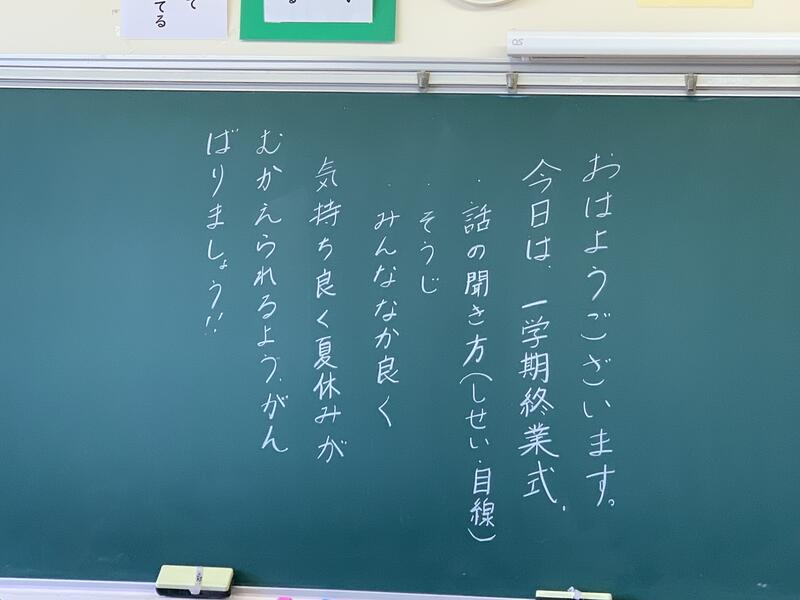 おはようございます。
今日は、一学期終業式.
・話の聞き方(しせい・目線)
・そうじ
・みんななか良く
気持ち良く夏休みが
むかえられるよう、がん
ばりましょう!!
て
てる
る
QS